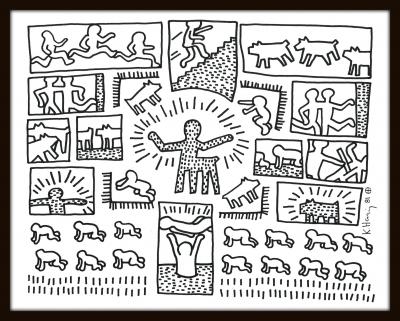 K. Haring 81 ⊕